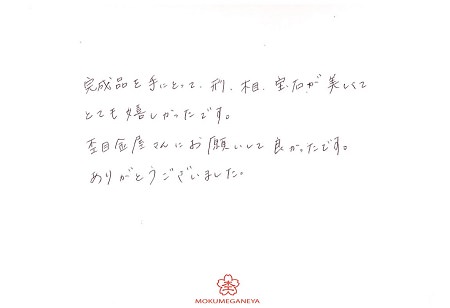 完成品を手にとって、形、相、宝石が美しくて
とても嬉しかったです。
杢目金屋さんにお願いして良かったです。
ありがとうございました。
MOKUMEGANEYA